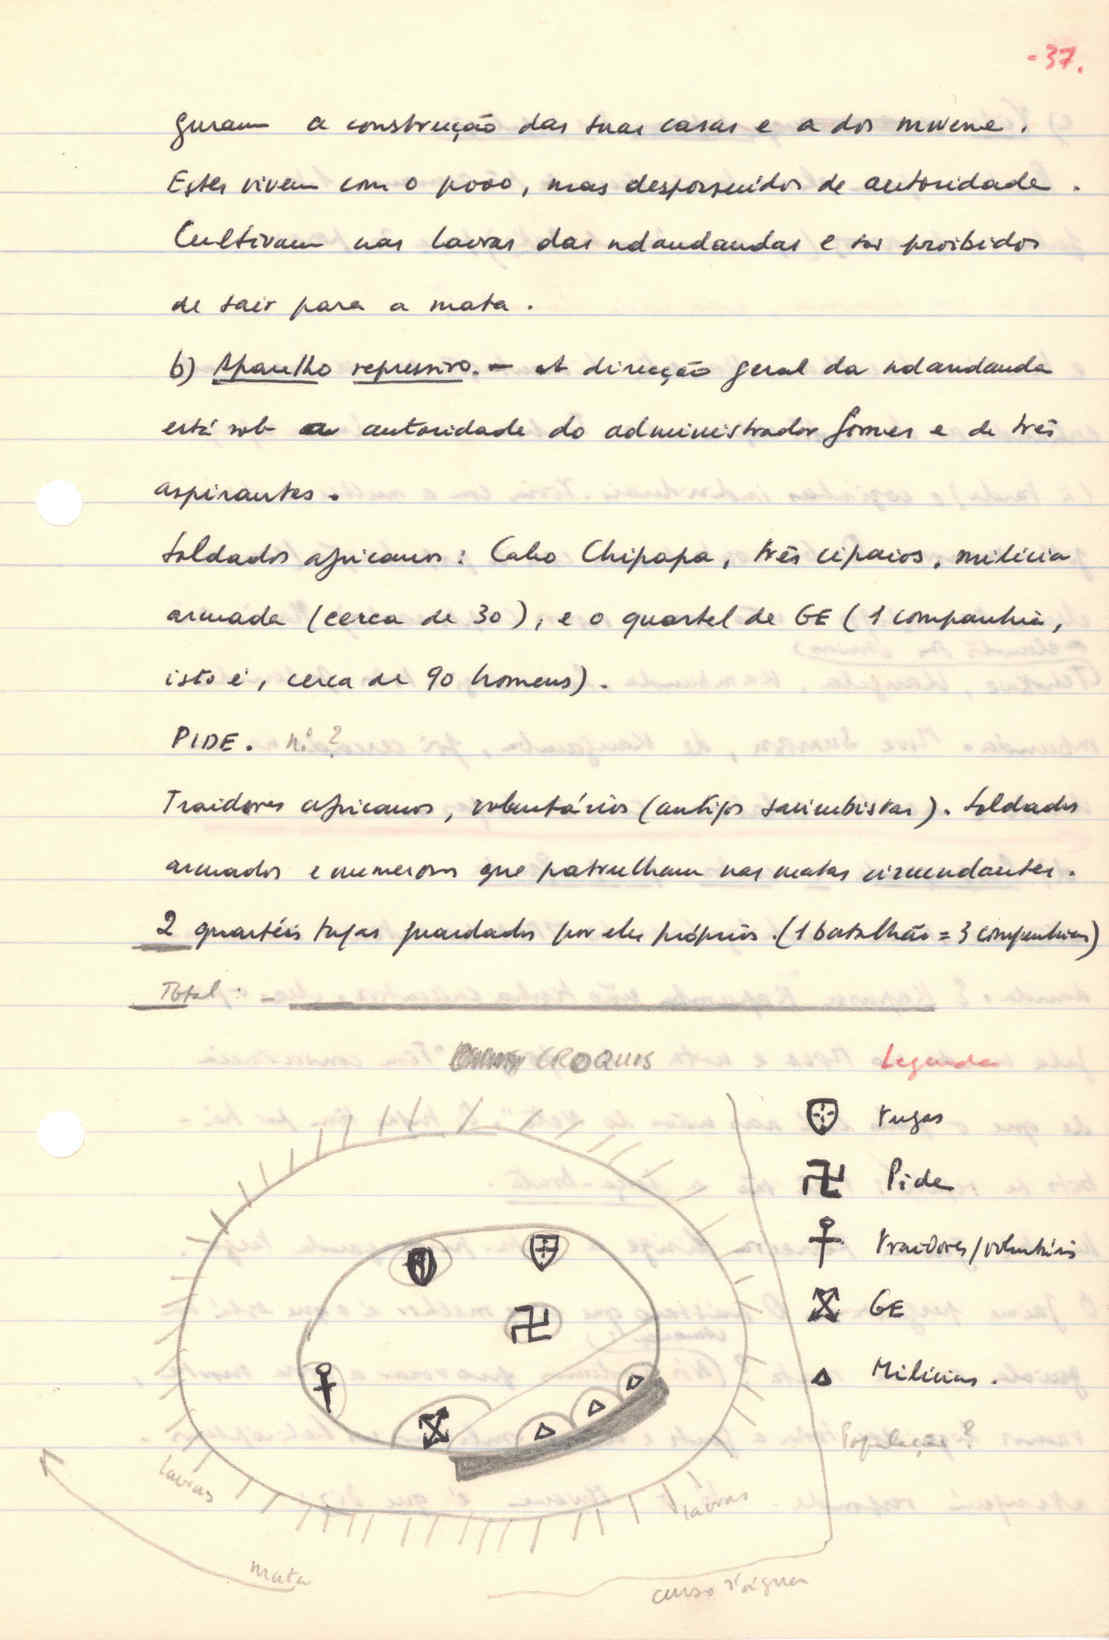 - 37.
guram a construção das suas casas e a dos mwene.
Estes vivem com o povo, mas despossuidos de autoridade.
Cultivam nas lavras das ndandandas e são proibidos
de sair para a mata.
b) Aparelho repressivo. - A direcção geral da ndandanda
está sob a autoridade do administrador Gomes e de três
aspirantes.
Soldados africanos: Cabo Chipapa, três cipaios, milícia
armada (cerca de 30), e o quartel de GE (1 companhia,
isto é, cerca de 90 homens).
PIDE. nº ?
Traidores africanos, voluntários (antigos savimbistas). Soldados
armados e numerosos que patrulham nas matas circundantes.
2 quartéis tugas guardados por eles próprios. (1 batalhão = 3 companhias)
Total: -
CROQUIS
Legenda
Tugas
Pide
Traidores/voluntários
GE
Milícias.
População ?
lavras
lavras
mata
curso d'água